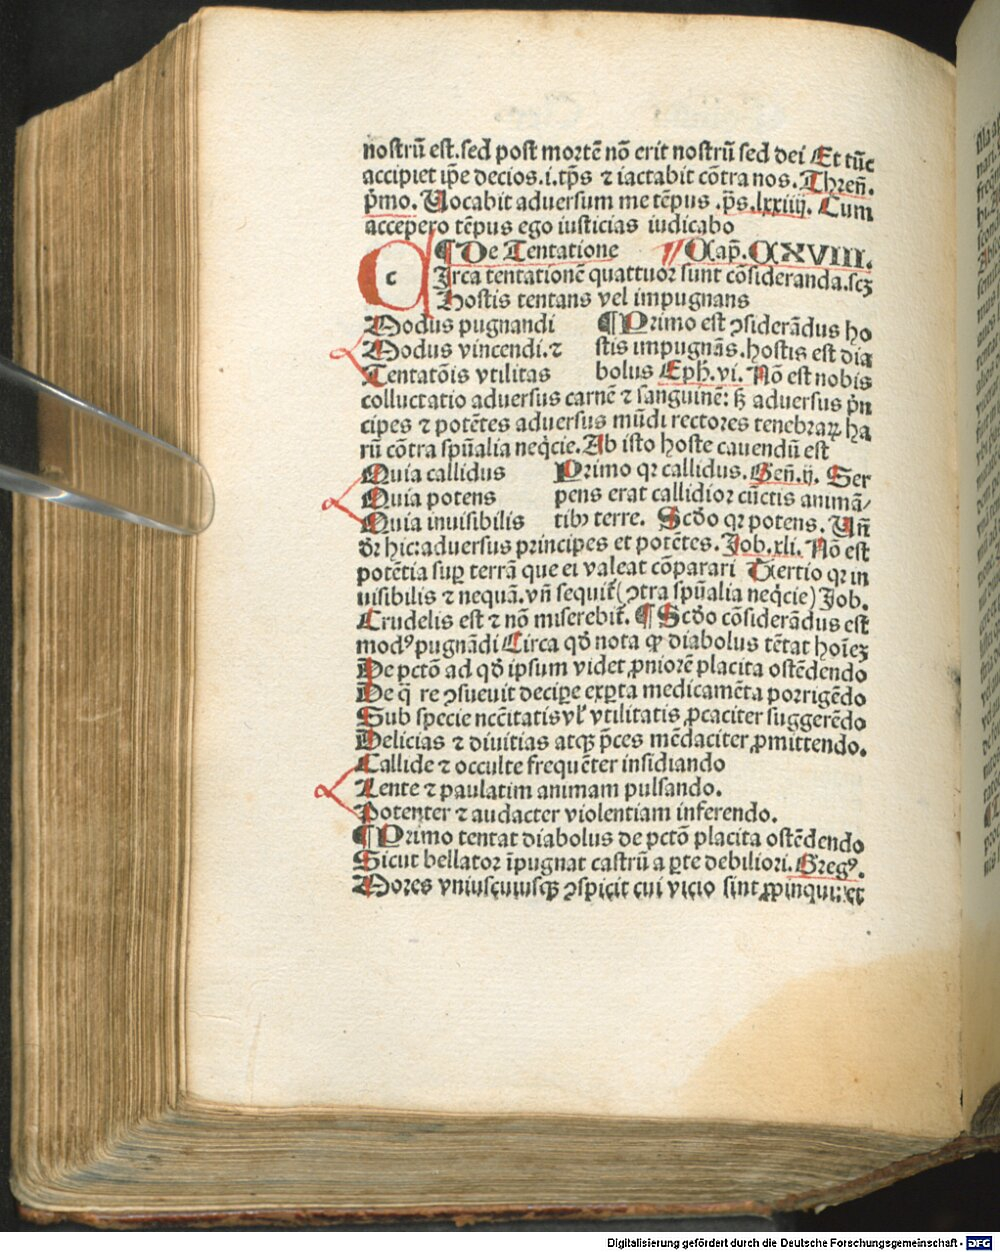 nostrū est.sed post mortē nō erit nostrū sed dei Et tūc
accipiet ip̄e decios.i.tp̄s ⁊ iactabit cōtra nos.Thren̄.
p̄mo. Uocabit aduersum me tēpus .ps̄.lxxiiij. Cum
accepero tēpus ego iusticias iudicabo
¶ De Tentatione ¶ Cap̄. CXVIII.
c Irca tentationē quattuor sunt cōsideranda.scꝫ
Hostis tentans vel impugnans
Modus pugnandi
Modus vincendi.⁊
Tentatōis vtilitas
¶ Primo est ꝯsiderādus ho
stis impugnās.hostis est dia
bolus Eph̄.vi. Nō est nobis
colluctatio aduersus carnē ⁊ sanguinē: sꝫ aduersus p̄n
cipes ⁊ potētes aduersus mūdi rectores tenebraꝝ ha
rū cōtra spūalia neq̄cie.Ab isto hoste cauendū est
Quia callidus
Quia potens
Quia inuisibilis
Primo qꝛ callidus.Gen̄.ij. Ser
pens erat callidior cūctis animā/
tibꝰ terre. Scd̄o qꝛ potens. Un̄
dr̄ hic:aduersus principes et potētes.Job.xli. Nō est
potētia suꝑ terrā que ei valeat cōparari Tertio qꝛ in
uisibilis ⁊ nequā.vn̄ sequit̄(ꝯtra spūalia neq̄cie)Job.
Crudelis est ⁊ nō miserebit̄. ¶ Scd̄o cōsiderādus est
modꝰ pugnādi Circa qd̄ nota ꝙ diabolus tētat hoīeꝫ
De pctō ad qd̄ ipsum videt ꝓniorē placita ostēdendo
De q̄ re ꝯsueuit deciꝑe exꝑta medicamēta porrigēdo
Sub specie ncc̄itatis vl̓ vtilitatis ꝓcaciter suggerēdo
Delicias ⁊ diuitias atqꝫ p̄ces mēdaciter ꝓmittendo.
Callide ⁊ occulte frequēter insidiando
Lente ⁊ paulatim animam pulsando.
Potenter ⁊ audacter violentiam inferendo.
¶ Primo tentat diabolus de pctō placita ostēdendo
Sicut bellator īpugnat castrū a ꝑte debiliori.Gregꝰ.
Mores vniuscuiusqꝫ ꝯspicit cui vicio sint ꝓpinqui:et
Digitalisierung gefördert durch die Deutsche Forschungsgemeinschaft - DFG